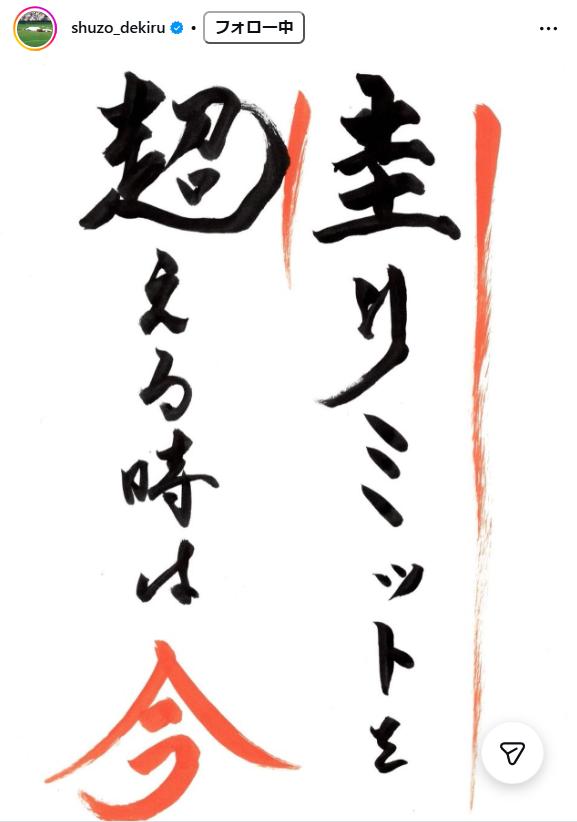 shuzo_dekiru • フォロー中
圭リミットを
超える時は今